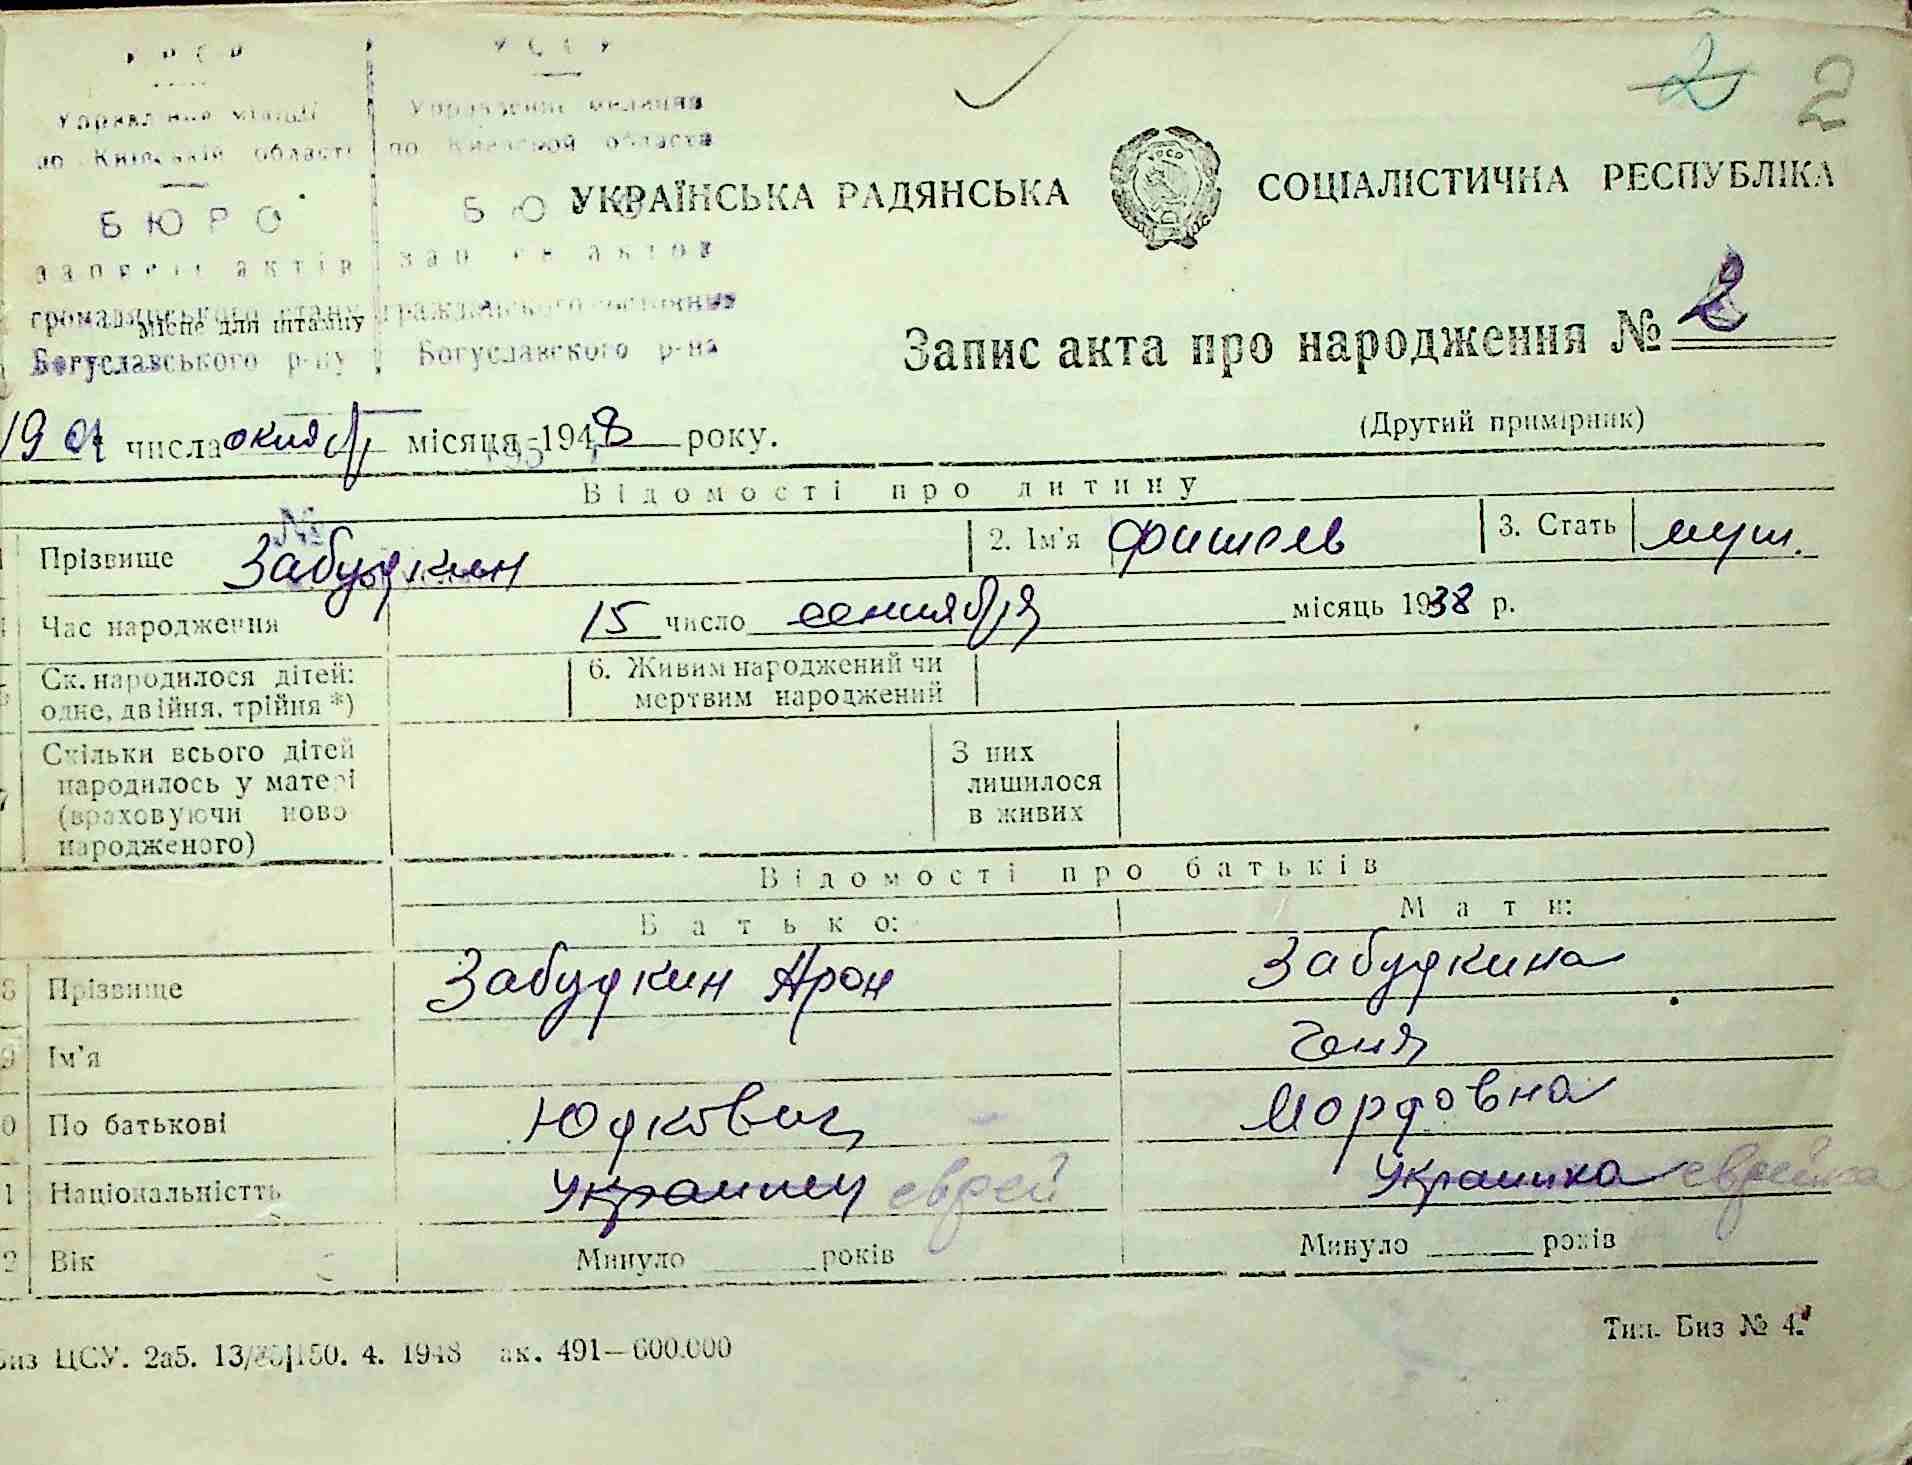 У Р С Р
У С С Р
Управління міліції
Управление милиции
по Київській області
по Киевской области
2 2
УКРАЇНСЬКА РАДЯНСЬКА СОЦІАЛІСТИЧНА РЕСПУБЛІКА
БЮРО
БЮРО
записів актів
записей актов
громадянського стану
гражданского состояния
місце для штампу
Богуславського р-ну
Богуславского р-на
Запис акта про народження № 2
(Другий примірник)
19 числа октября місяця 1948 року.
Відомості про дитину
Прізвище Забудкин 2. Ім'я Фишель 3. Стать муж.
Час народження 15 число сентября місяць 1938 р.
Ск. народилося дітей: 6. Живим народжений чи
одне, двійня, трійня *) мертвим народжений
Скільки всього дітей З них
народилось у матері лишилося
(враховуючи ново в живих
народженого)
Відомості про батьків
Батько: Мати:
8 Прізвище Забудкин Арон Забудкина
9 Ім'я Геня
0 По батькові Юдкович Мордовна
1 Національність Украинец еврей Украинка еврейка
2 Вік Минуло років Минуло років
Тип. Биз № 4.
Биз ЦСУ. 2а5. 4. 1948 ак. 491—600.000